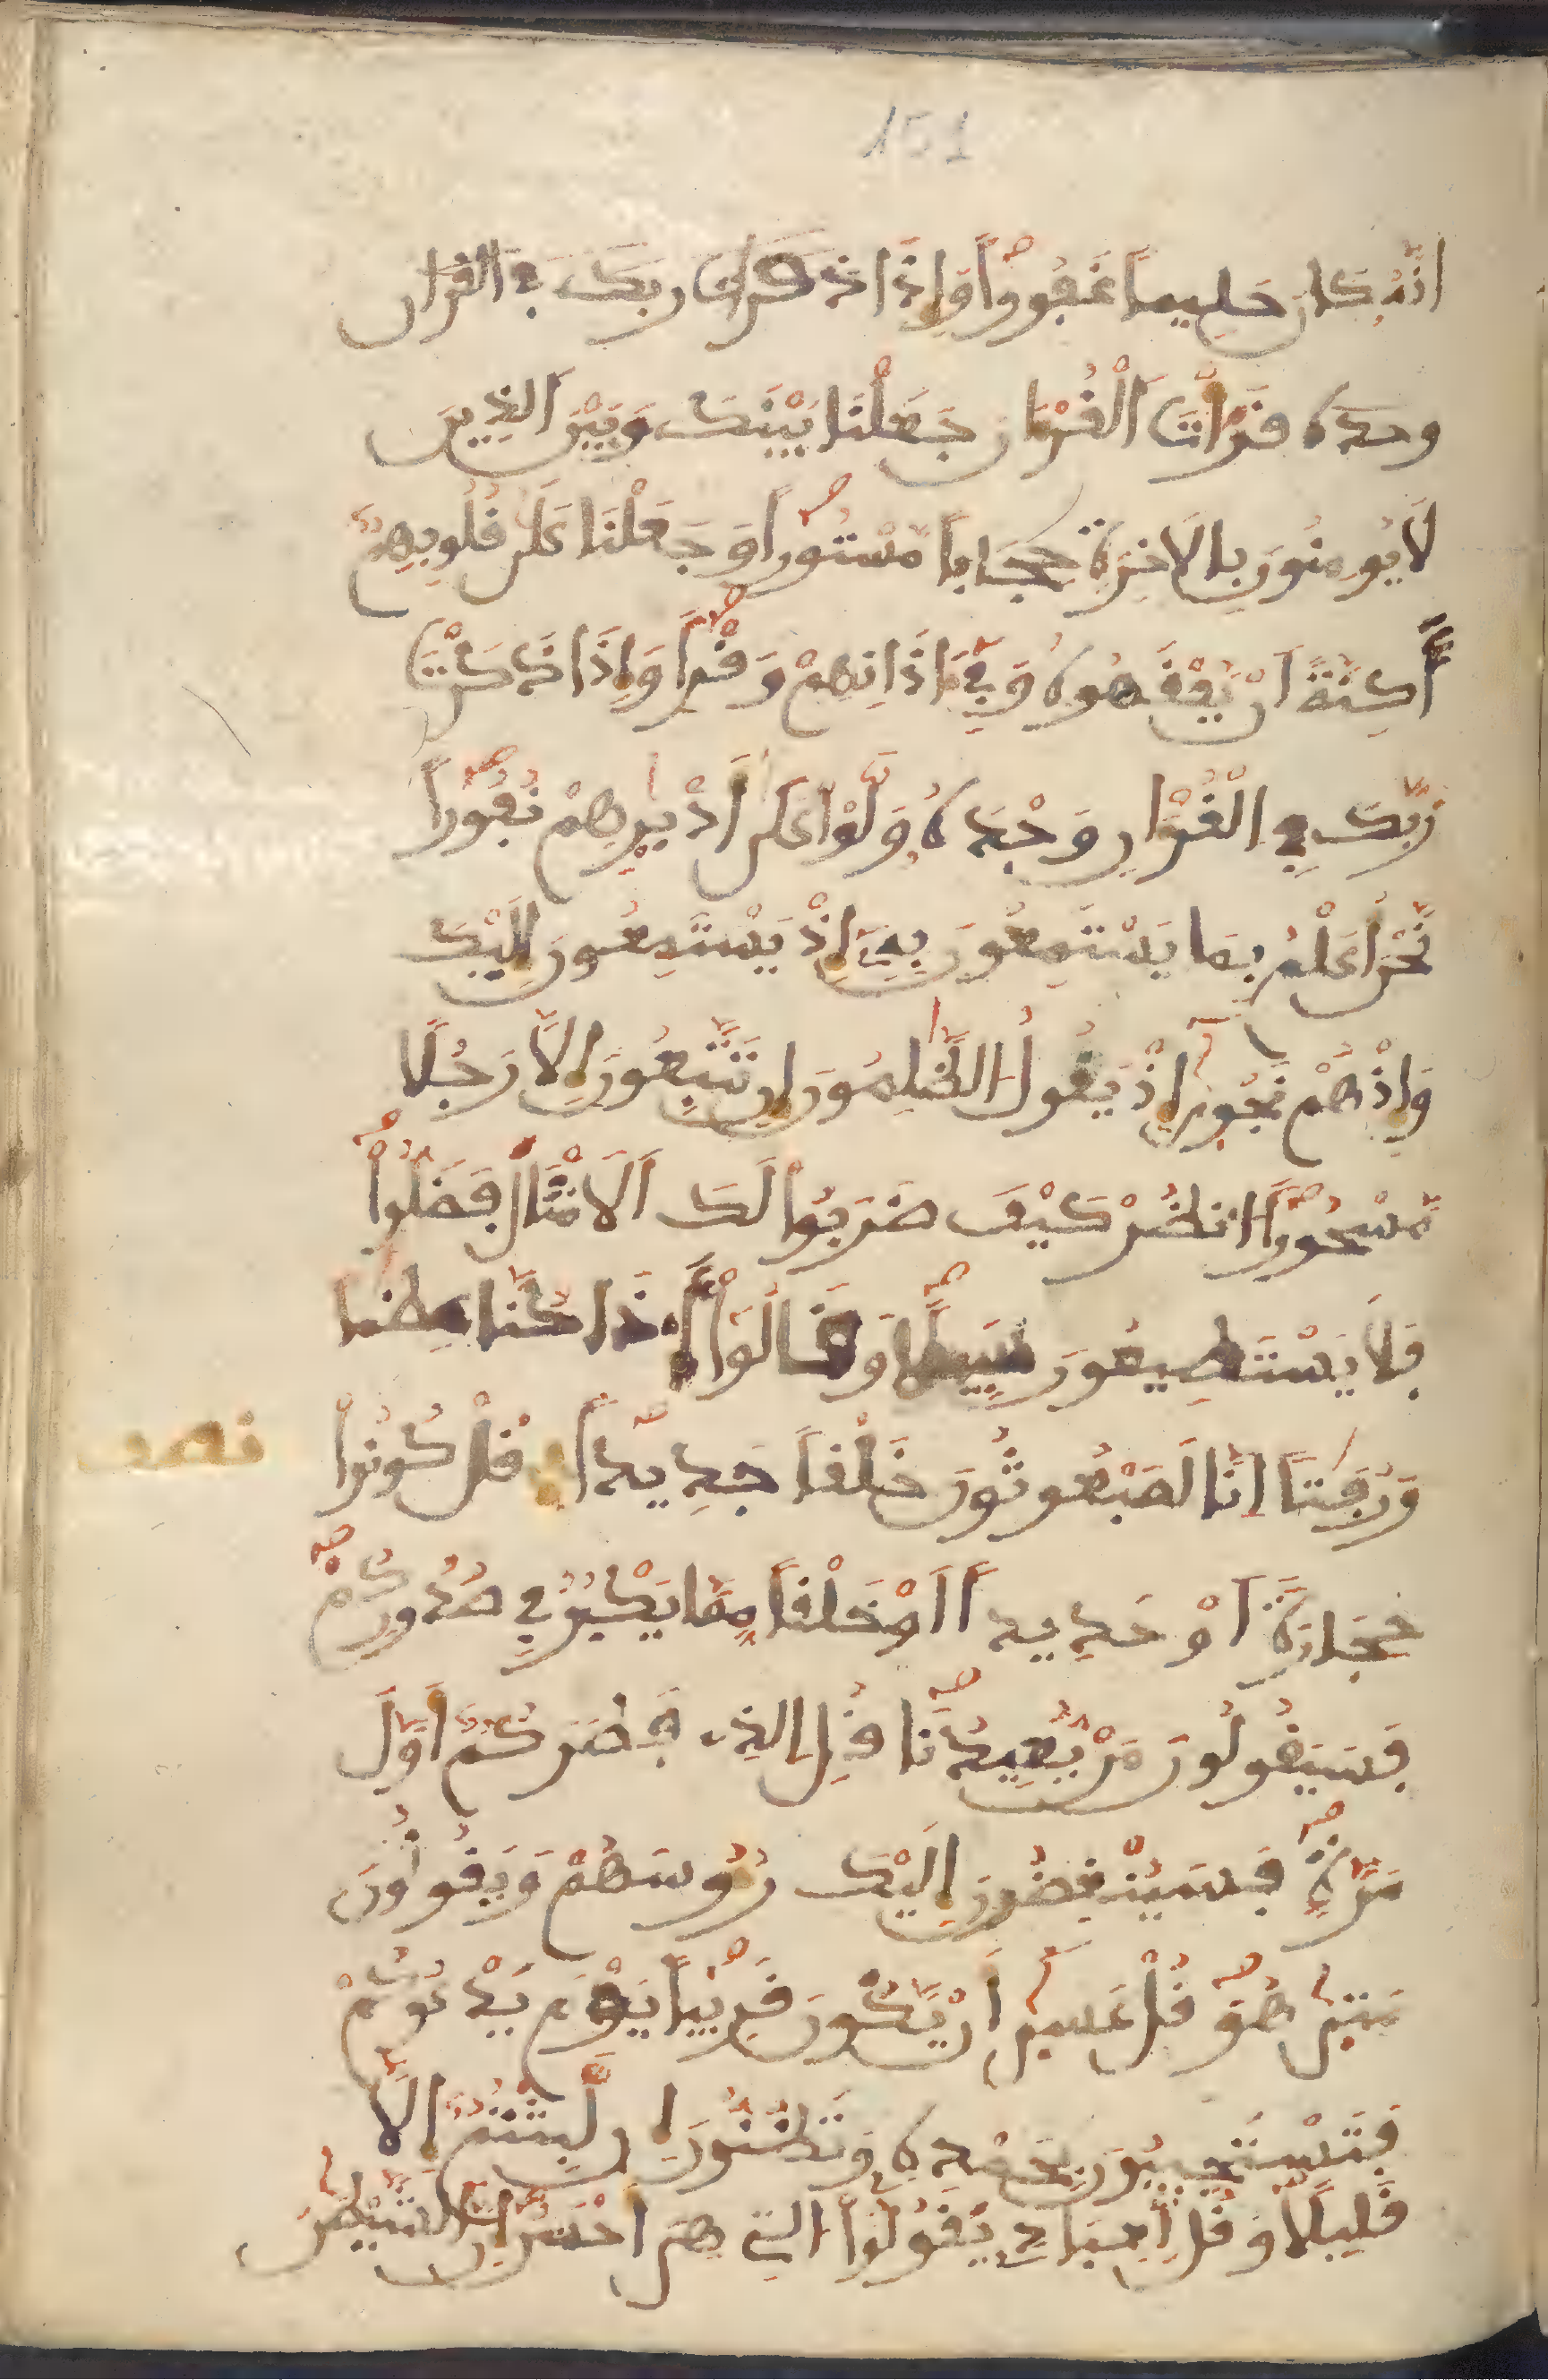 151
انه كان حليما غفورا واذا ذكرت ربك في القران
وحده قرات القران جعلنا بينك وبين الذين
لا يومنون بالاخرة حجابا مستورا وجعلنا على قلوبهم
أكنة ان يفقهوه وفي ءاذانهم وقرا واذا ذكرت
ربك في القران وحده ولوا على ادبرهم نفورا
نحن اعلم بما يستمعون به إذ يستمعون إليك
وإذ هم نجوى إذ يقول الظلمون إن تتبعون إلا رجلا
مسحورا انظر كيف ضربوا لك الامثال فضلوا
فلا يستطيعون سبيلا وقالوا أ.ذا كنا عظما
ورفتا انا لمبعوثون خلقا جديدا قل كونوا
نصف
حجارة او حديدا او خلقا مما يكبر في صدوركم
فسيقولون من يعيدنا قل الذي فطركم اول
مرة فسينغضون إليك رءوسهم ويقولون
متى هو قل عسى ان يكون قريبا يوم يدعوكم
فتستجيبون بحمده وتظنون إن لبثتم إلا
قليلا وقل لعبادي يقولوا التي هي احسن إن الشيطن